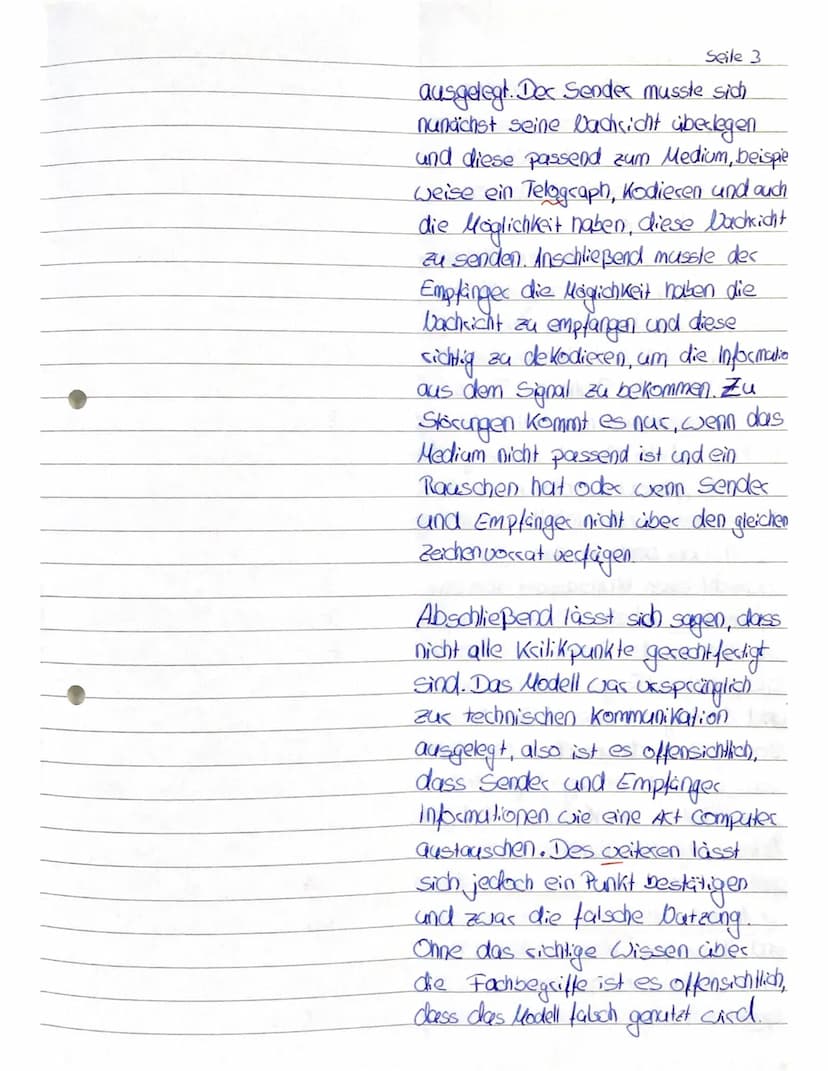 Seite 3
ausgelegt. Der Sender musste sich
nunächst seine Nachricht überlegen
und diese passend zum Medium, beispie
weise ein Telograph, kodieren und auch
die Möglichkeit haben, diese Nachricht
zu senden. Anschließend musste der
Empfänger die Möglichkeit haben die
Nachricht zu empfangen und diese
richtig zu dekodieren, um die Informatio
aus dem Signal zu bekommen. Zu
Störungen kommt es nur, wenn das
Medium nicht passend ist und ein
Rauschen hat oder wenn Sender
und Empfänger nicht über den gleichen
Zeichenvorrat verfügen.
Abschließend lässt sich sagen, dass
nicht alle Kritikpunkte gerechtfertigt
sind. Das Modell war ursprünglich
zur technischen Kommunikation
ausgelegt, also ist es offensichtlich,
dass Sender und Empfänger
Informationen wie eine Art Computer
austauschen. Des weiteren lässt
sich jedoch ein Punkt bestätigen
und zwar die falsche Nutzung.
Ohne das richtige Wissen über
die Fachbegriffe ist es offensichtlich,
dass das Modell falsch genutzt wird.